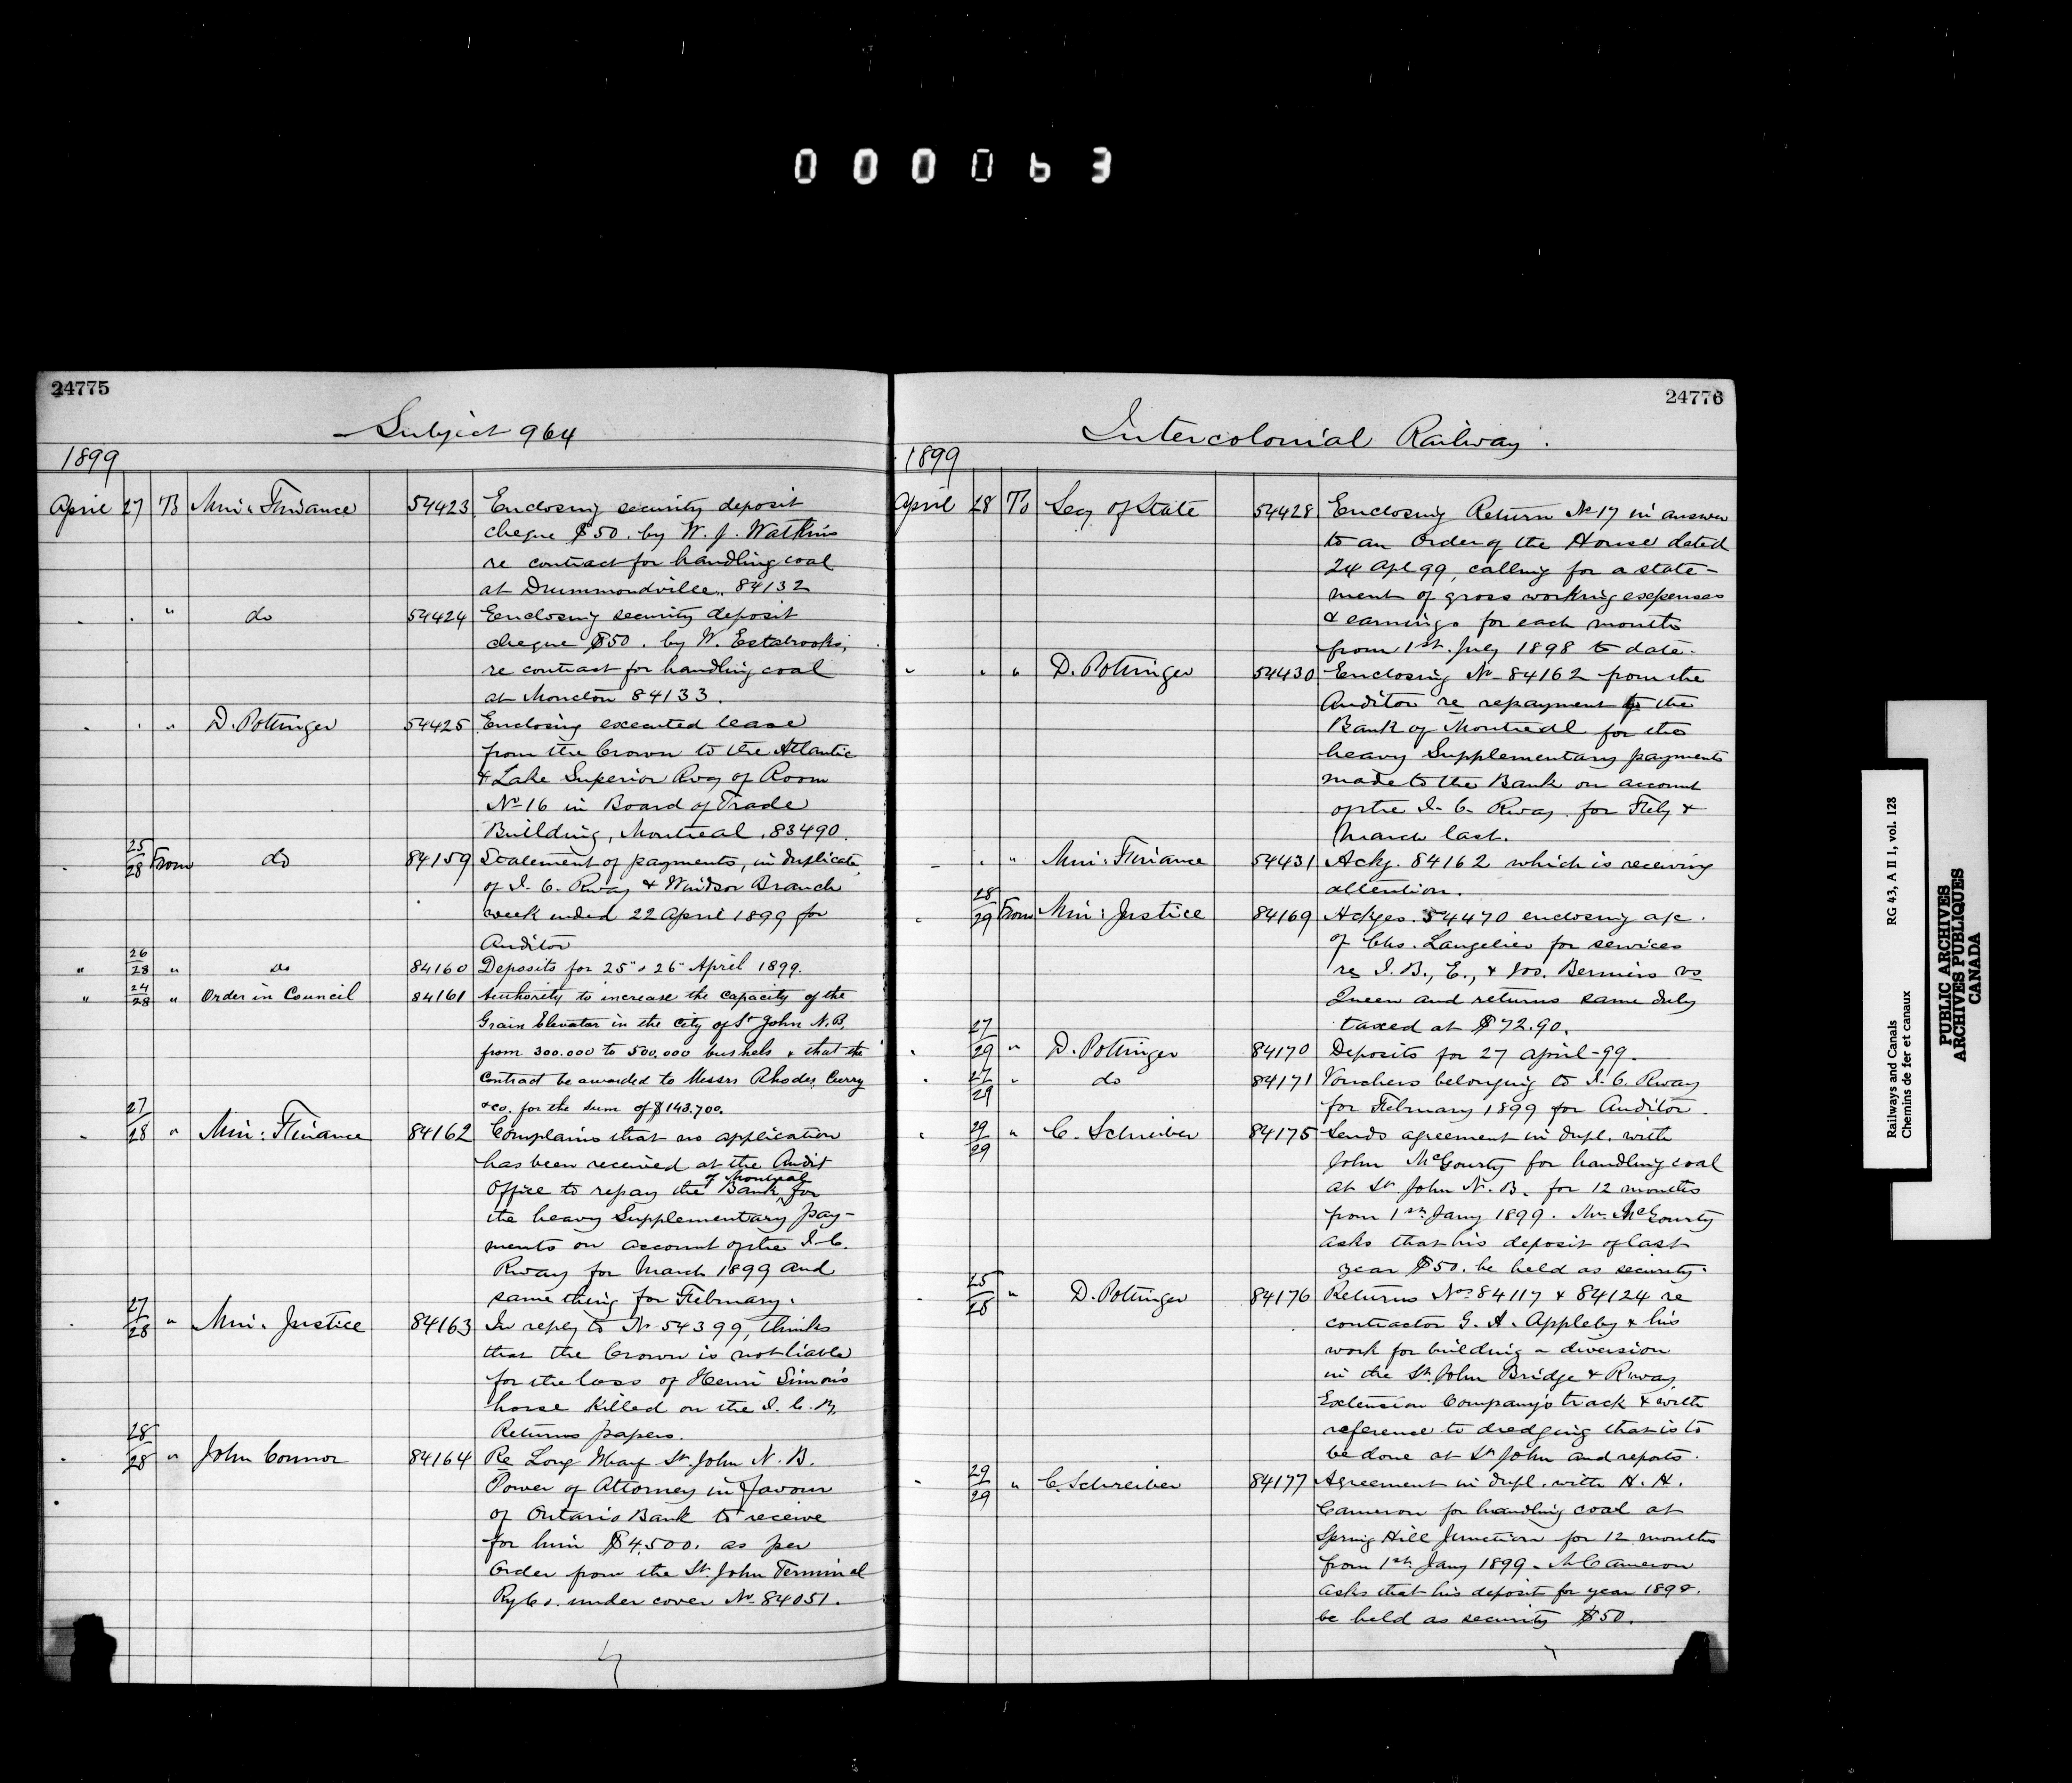 000063
24775
Subject 964
1899
April 27 To Min: Finance 54423 Enclosing security deposit
cheque $50. by W. J. Watkins
re contract for handling coal
at Drummondville. 84132
" " " do 54424 Enclosing security deposit
cheque $50. by W. Estabrooks,
re contract for handling coal
at Moncton 84133.
" " " D. Pottinger 54425 Enclosing executed lease
from the Crown to the Atlantic
& Lake Superior Rwy of Room
No 16 in Board of Trade
Building, Montreal. 83490.
" 25/28 From do 84159 Statement of payments, in duplicate,
of I. C. Rway & Windsor Branch
week ended 22 April 1899 for
Auditor
" 26/28 " do 84160 Deposits for 25" & 26" April 1899.
" 24/28 " Order in Council 84161 Authority to increase the capacity of the
Grain Elevator in the City of St John N.B.
from 300.000 to 500,000 bushels & that the
contract be awarded to Messrs Rhodes, Curry
& Co. for the sum of $143.700.
" 27/28 " Min: Finance 84162 Complains that no application
has been received at the Audit
Office to repay the Bank of Montreal for
the heavy Supplementary pay-
ments on account of the I. C.
Rway for March 1899 and
same thing for February.
" 27/28 " Min: Justice 84163 In reply to No 54399, thinks
that the Crown is not liable
for the loss of Henri Simon's
horse killed on the I. C. R.
Returns papers.
" 28/28 " John Connor 84164 Re Long Wharf St. John N. B.
Power of Attorney in favour
of Ontario Bank to receive
for him $4,500. as per
Order from the St. John Terminal
Ry Co. under cover No 84051.
24776
Intercolonial Railway.
1899
April 28 To Secy of State 54428 Enclosing Return No 17 in answer
to an Order of the House dated
24 Apl 99, calling for a state-
ment of gross working expenses
& earnings for each month
from 1st July 1898 to date.
" " " D. Pottinger 54430 Enclosing No 84162 from the
Auditor re repayment to the
Bank of Montreal for the
heavy Supplementary payments
made to the Bank on account
of the I. C. Rway for Feby &
March last.
" " " Min: Finance 54431 Ackg. 84162 which is receiving
attention.
" 28/29 From Min: Justice 84169 Ackges. 54470 enclosing a/c.
of Chs. Langelier for services
re I. B., E., & Jos. Berniers vs
Queen and returns same duly
taxed at $72.90.
" 27/29 " D. Pottinger 84170 Deposits for 27 April -99.
" 27/29 " do 84171 Vouchers belonging to I. C. Rway
for February 1899 for Auditor.
" 29/29 " C. Schreiber 84175 Sends agreement in dupl. with
John McGourty for handling coal
at St. John N. B. for 12 months
from 1st Jany 1899. Mr. McGourty
asks that his deposit of last
year $50. be held as security.
" 25/28 " D. Pottinger 84176 Returns Nos 84117 & 84124 re
contractor G. A. Appleby & his
work for building a diversion
in the St. John Bridge & Rway
Extension Company's track & with
reference to dredging that is to
be done at St John and reports.
" 29/29 " C. Schreiber 84177 Agreement in dupl. with H. H.
Cameron for handling coal at
Spring Hill Junction for 12 months
from 1st Jany 1899. Mr Cameron
asks that his deposit for year 1898.
be held as security $50.
Railways and Canals RG 43, A II 1, vol. 128
Chemins de fer et canaux
PUBLIC ARCHIVES
ARCHIVES PUBLIQUES
CANADA